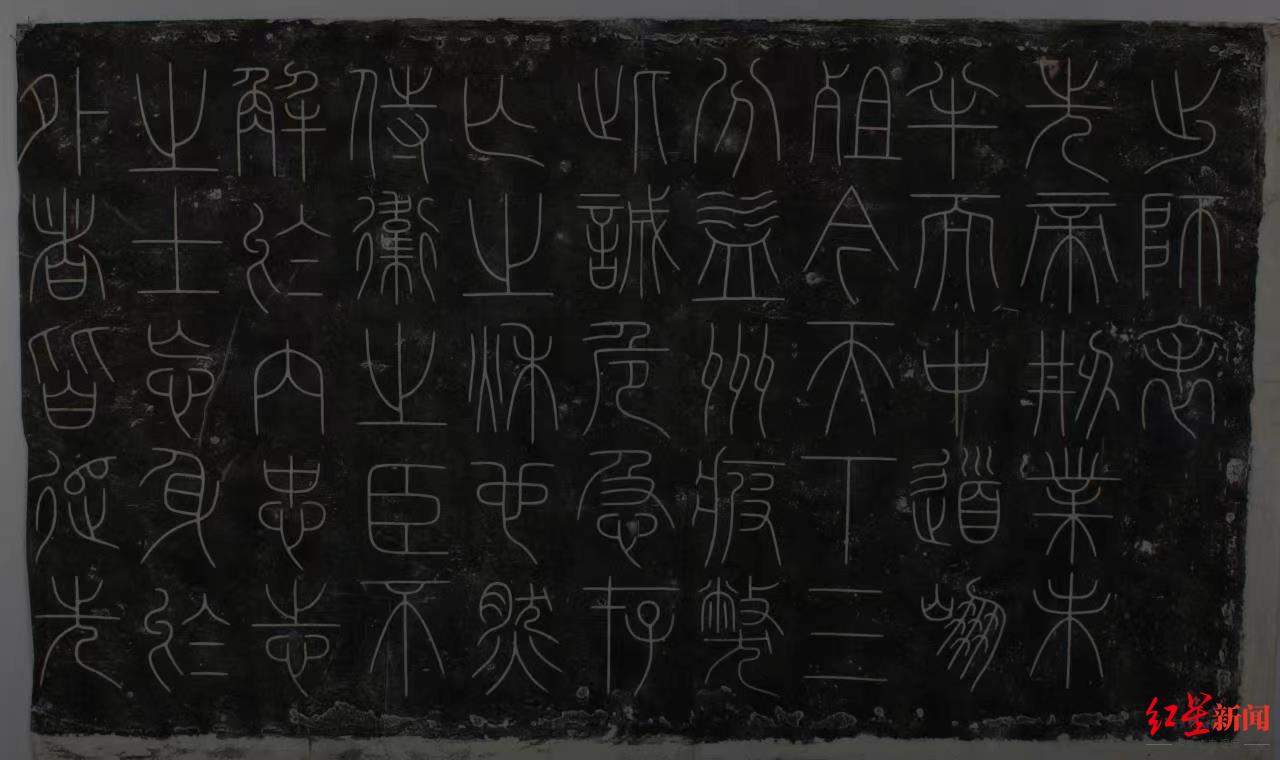 出師表
先帝刱業未
半而中道崩
殂今天下三
分益州疲敝
此誠危急存
亡之秋也然
侍衛之臣不
解於内忠志
之士忘身於
外者皆追先
红星新闻